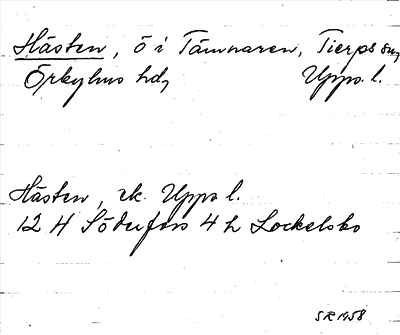 Hästen, ö i Tämnaren, Tierps sn,
Örbyhus hd, Upps. l.
Hästen, ek. Upps l.
12 H Söderfors 4 h Lockelsbo
SR 1958